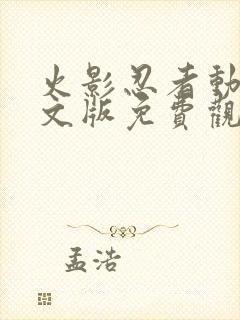 火影忍者動
文版免費觀
孟浩